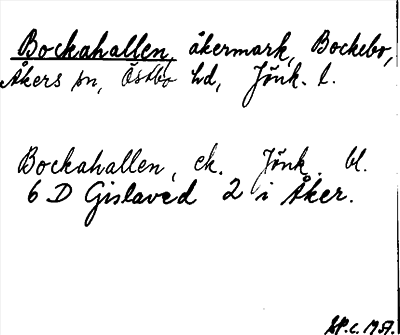 Bockahallen, åkermark, Bockebo,
Åkers sn, Östbo hd, Jönk. l.
Bockahallen, ek. Jönk. bl.
6 D Gislaved 2 i Åker.
c. 1957.